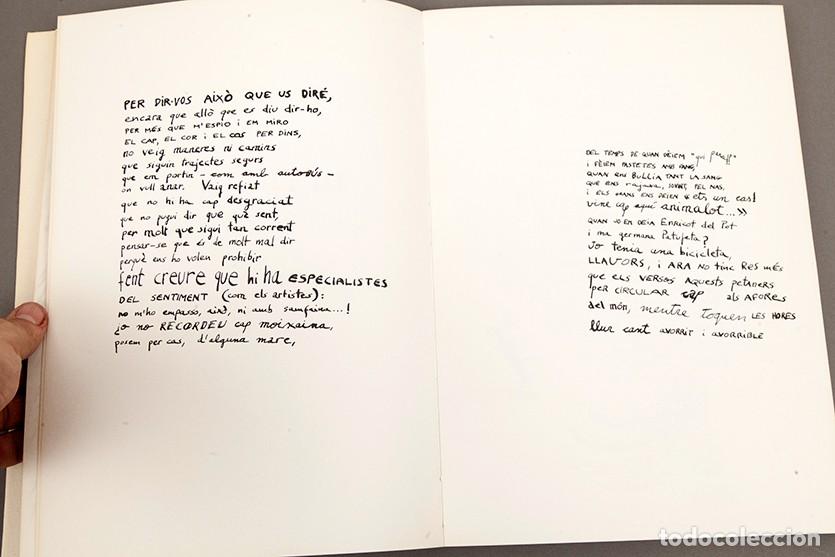 PER DIR-VOS AIXÒ QUE US DIRÉ,
encara que allò que es diu dir-ho,
PER MÉS QUE M'ESPIO I EM MIRO
EL CAP, EL COR I EL COS PER DINS,
no veig maneres ni camins
que siguin trajectes segurs
que em portin - com amb autobús -
on vull anar. Vaig refiat
que no hi ha cap desgraciat
que no pugui dir què què sent,
per molt que sigui tan corrent
pensar-se que és de molt mal dir
perquè ens ho volen prohibir
fent creure que hi ha ESPECIALISTES
DEL SENTIMENT (com els artistes):
no m'ho empasso, això, ni amb samfaina...!
¿o no RECORDEU cap moixaina,
posem per cas, d'alguna mare,
DEL TEMPS DE QUAN DÈIEM "qui
I FÈIEM PASTETES AMB FANG,
QUAN ENS BULLIA TANT LA SANG
QUE ENS rajava, SOVINT, PEL NAS,
I ELS GRANS ENS DEIEN «ets un cas!
vine cap aquí animalot...»
QUAN JO EM DEIA Enricot del Pot
i ma germana Patufeta?
Jo tenia una bicicleta,
LLAVORS, i ARA NO tinc RES més
que ELS VERSOS AQUESTS petaners
per CIRCULAR cap als AFORES
del món, mentre toquen LES HORES
llur cant AVORRIT i AVORRIBLE
todocoleccion